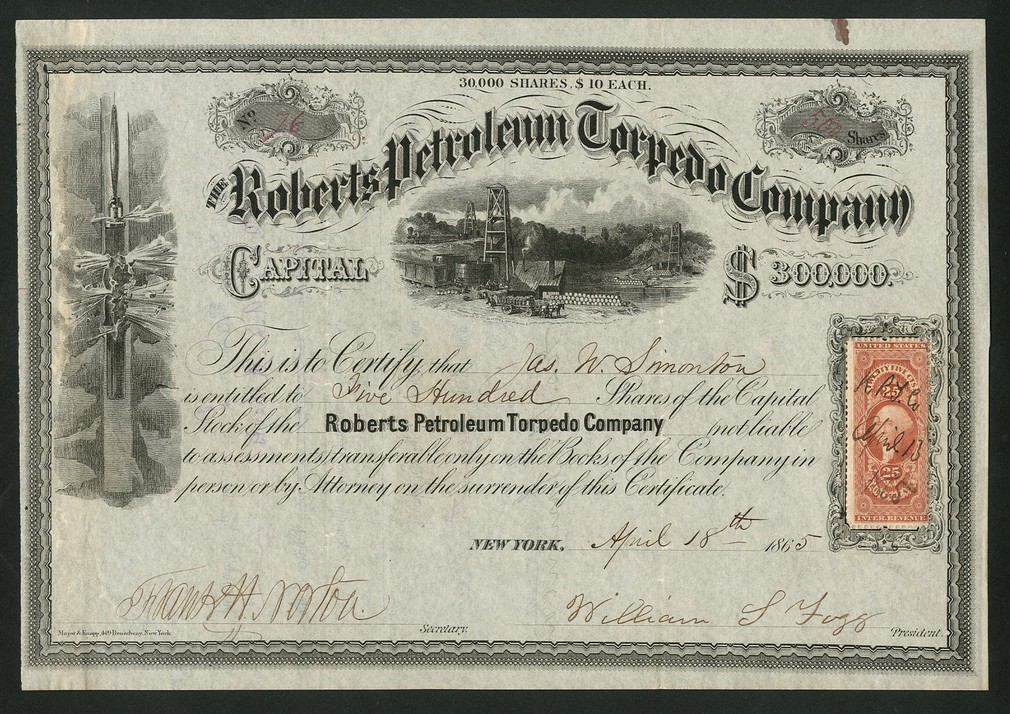 30,000 SHARES, $10 EACH.
No. 76
500 Shares
THE Roberts Petroleum Torpedo Company
CAPITAL $300,000.
This is to Certify, that Jas. W. Simonton
is entitled to Five Hundred Shares of the Capital
Stock of the Roberts Petroleum Torpedo Company (not liable
to assessments) transferable only on the Books of the Company in
person or by Attorney on the surrender of this Certificate.
UNITED STATES
25
April 13
25
INTER. REVENUE
NEW YORK, April 18th 1865
Frank H. Norton William S Fogg
Secretary. President.
Major & Knapp, 449 Broadway, New York.